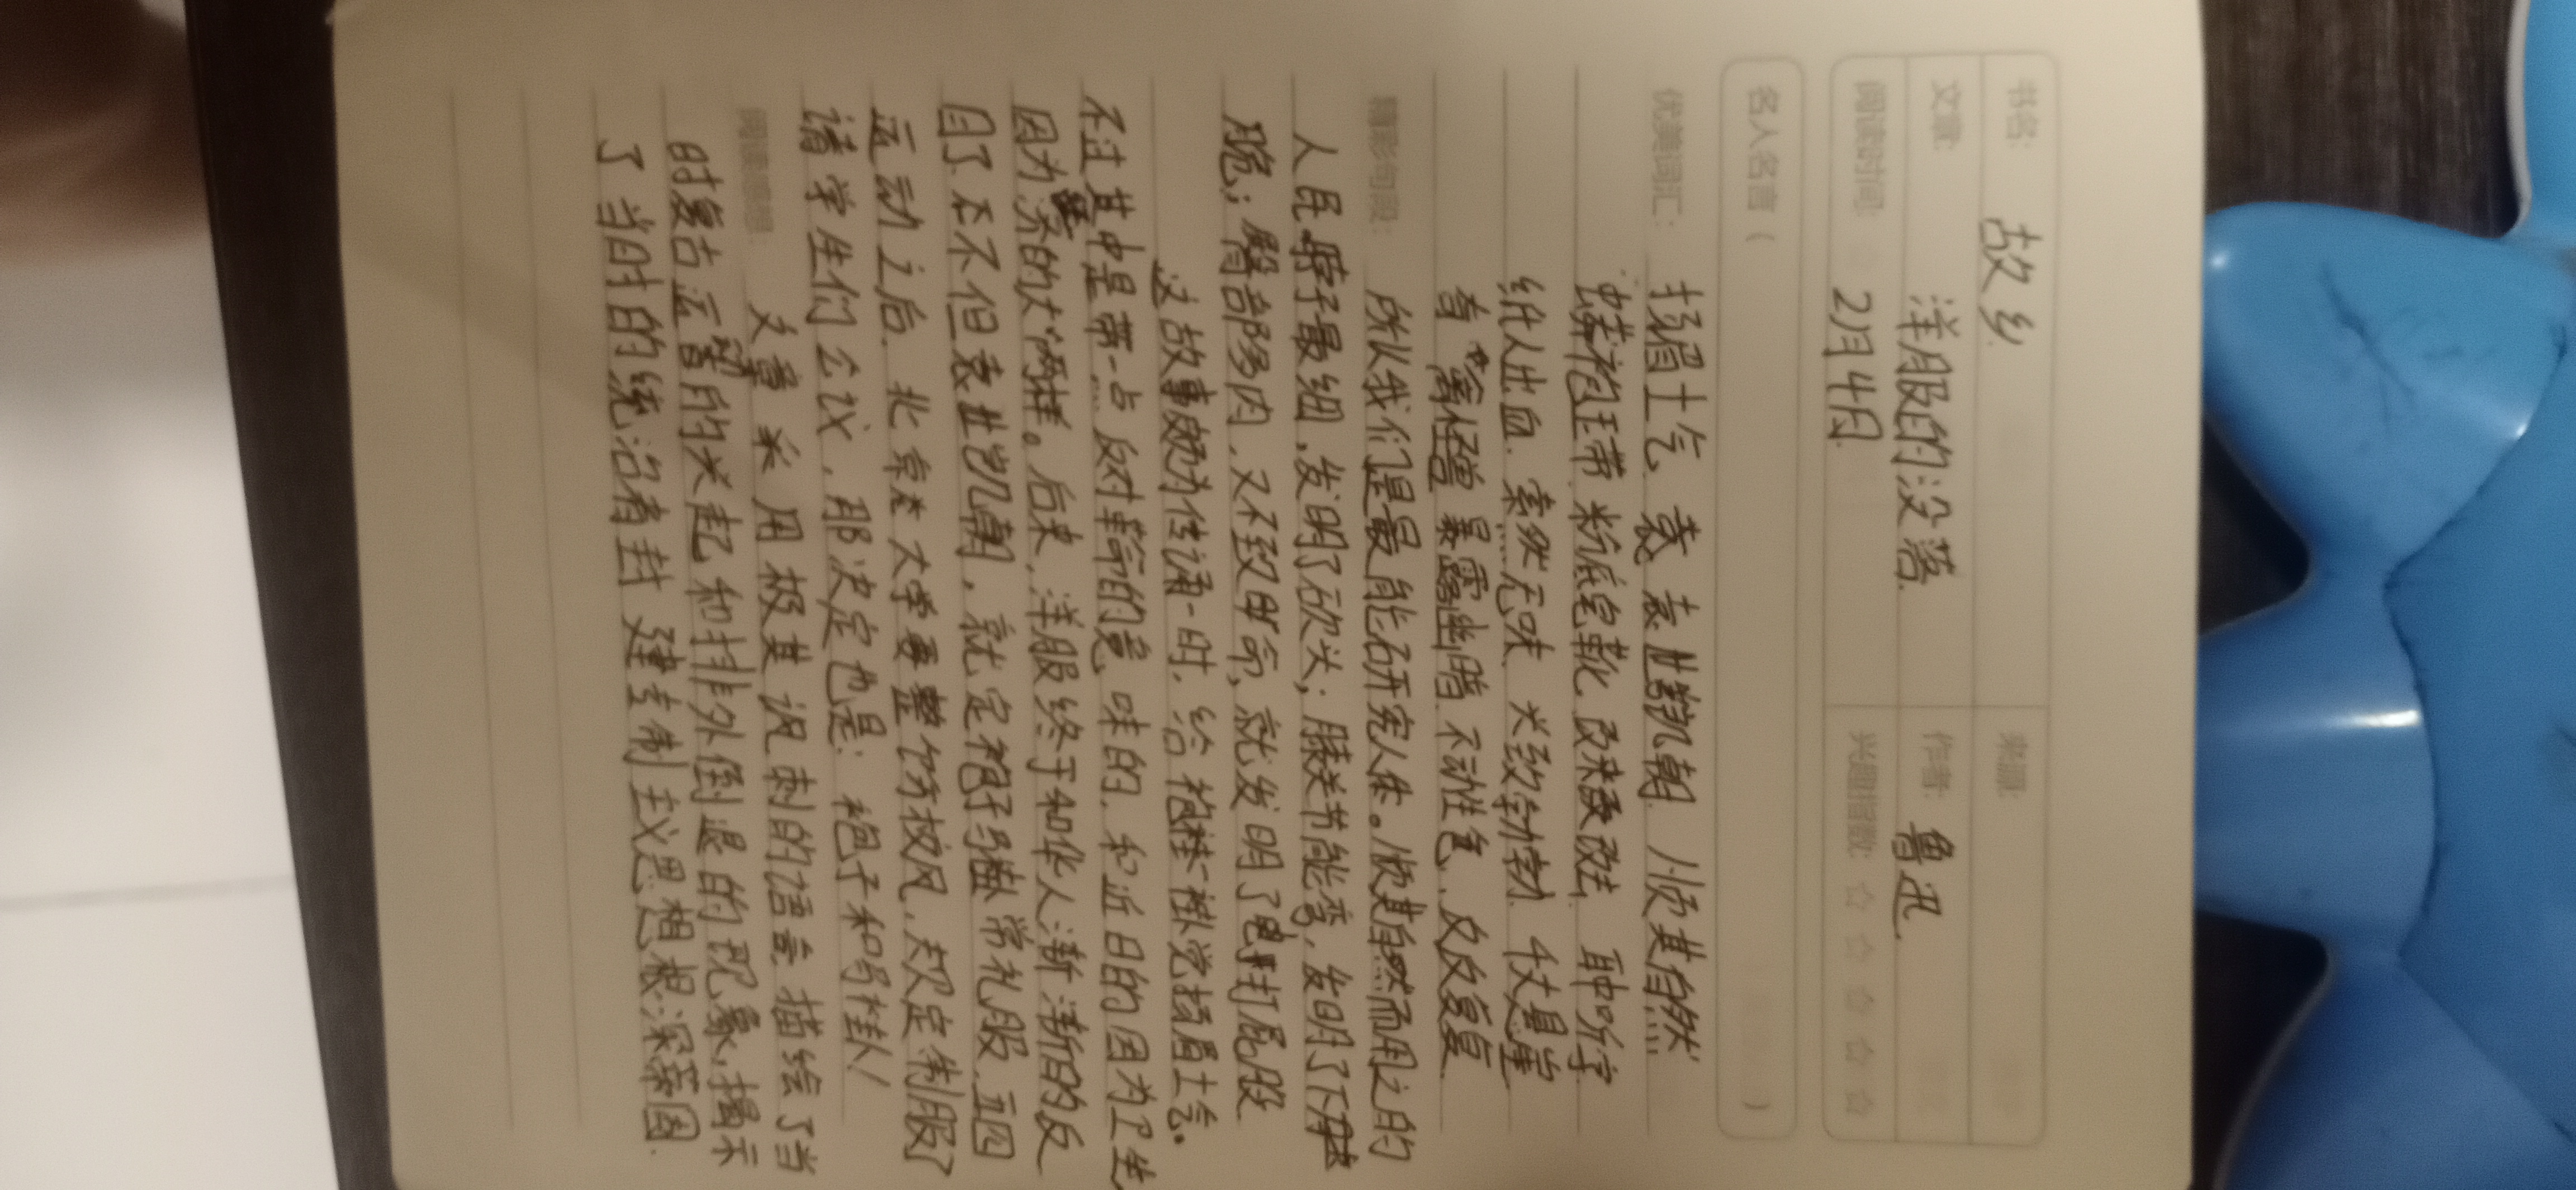 书名: 故乡 来源:
文章: 洋服的没落 作者: 鲁迅
阅读时间: 2月4日 兴趣指数: ☆☆☆☆☆
名人名言 ( )
优美词汇: 扬眉士气 袁世凯朝 顺其自然
蟒袍玉带 粉底皂靴 改来改去
纸人出血 索然无味 大致
奇 暴露幽暗 不动准色 反反复复
精彩句段: 所以我们是最能研究人体。顺其自然而用之的
人民。脖子最细,发明了砍头;膝关节能弯,发明了下
脆;臀部多肉,又不致命,就发明了打屁股
这故事颇为传诵一时,给袍褂党扬眉士气。
不过其中是带一点反对革命的意味的,和近日的因为卫生
因为 济的大两样。后来,洋服终于和华人渐渐的反
目了,不但袁世凯朝,就定袍子马褂常礼服,五四
运动之后,北京大学要整饬校风,规定制服了
请学生们公议,那决定也是:袍子和马褂!
阅读感想: 文章采用极其讽刺的语言,描绘了当
时复古运动的兴起和排外倒退的现象,揭示
了当时的统治者封建专制主义思想根深蒂固.